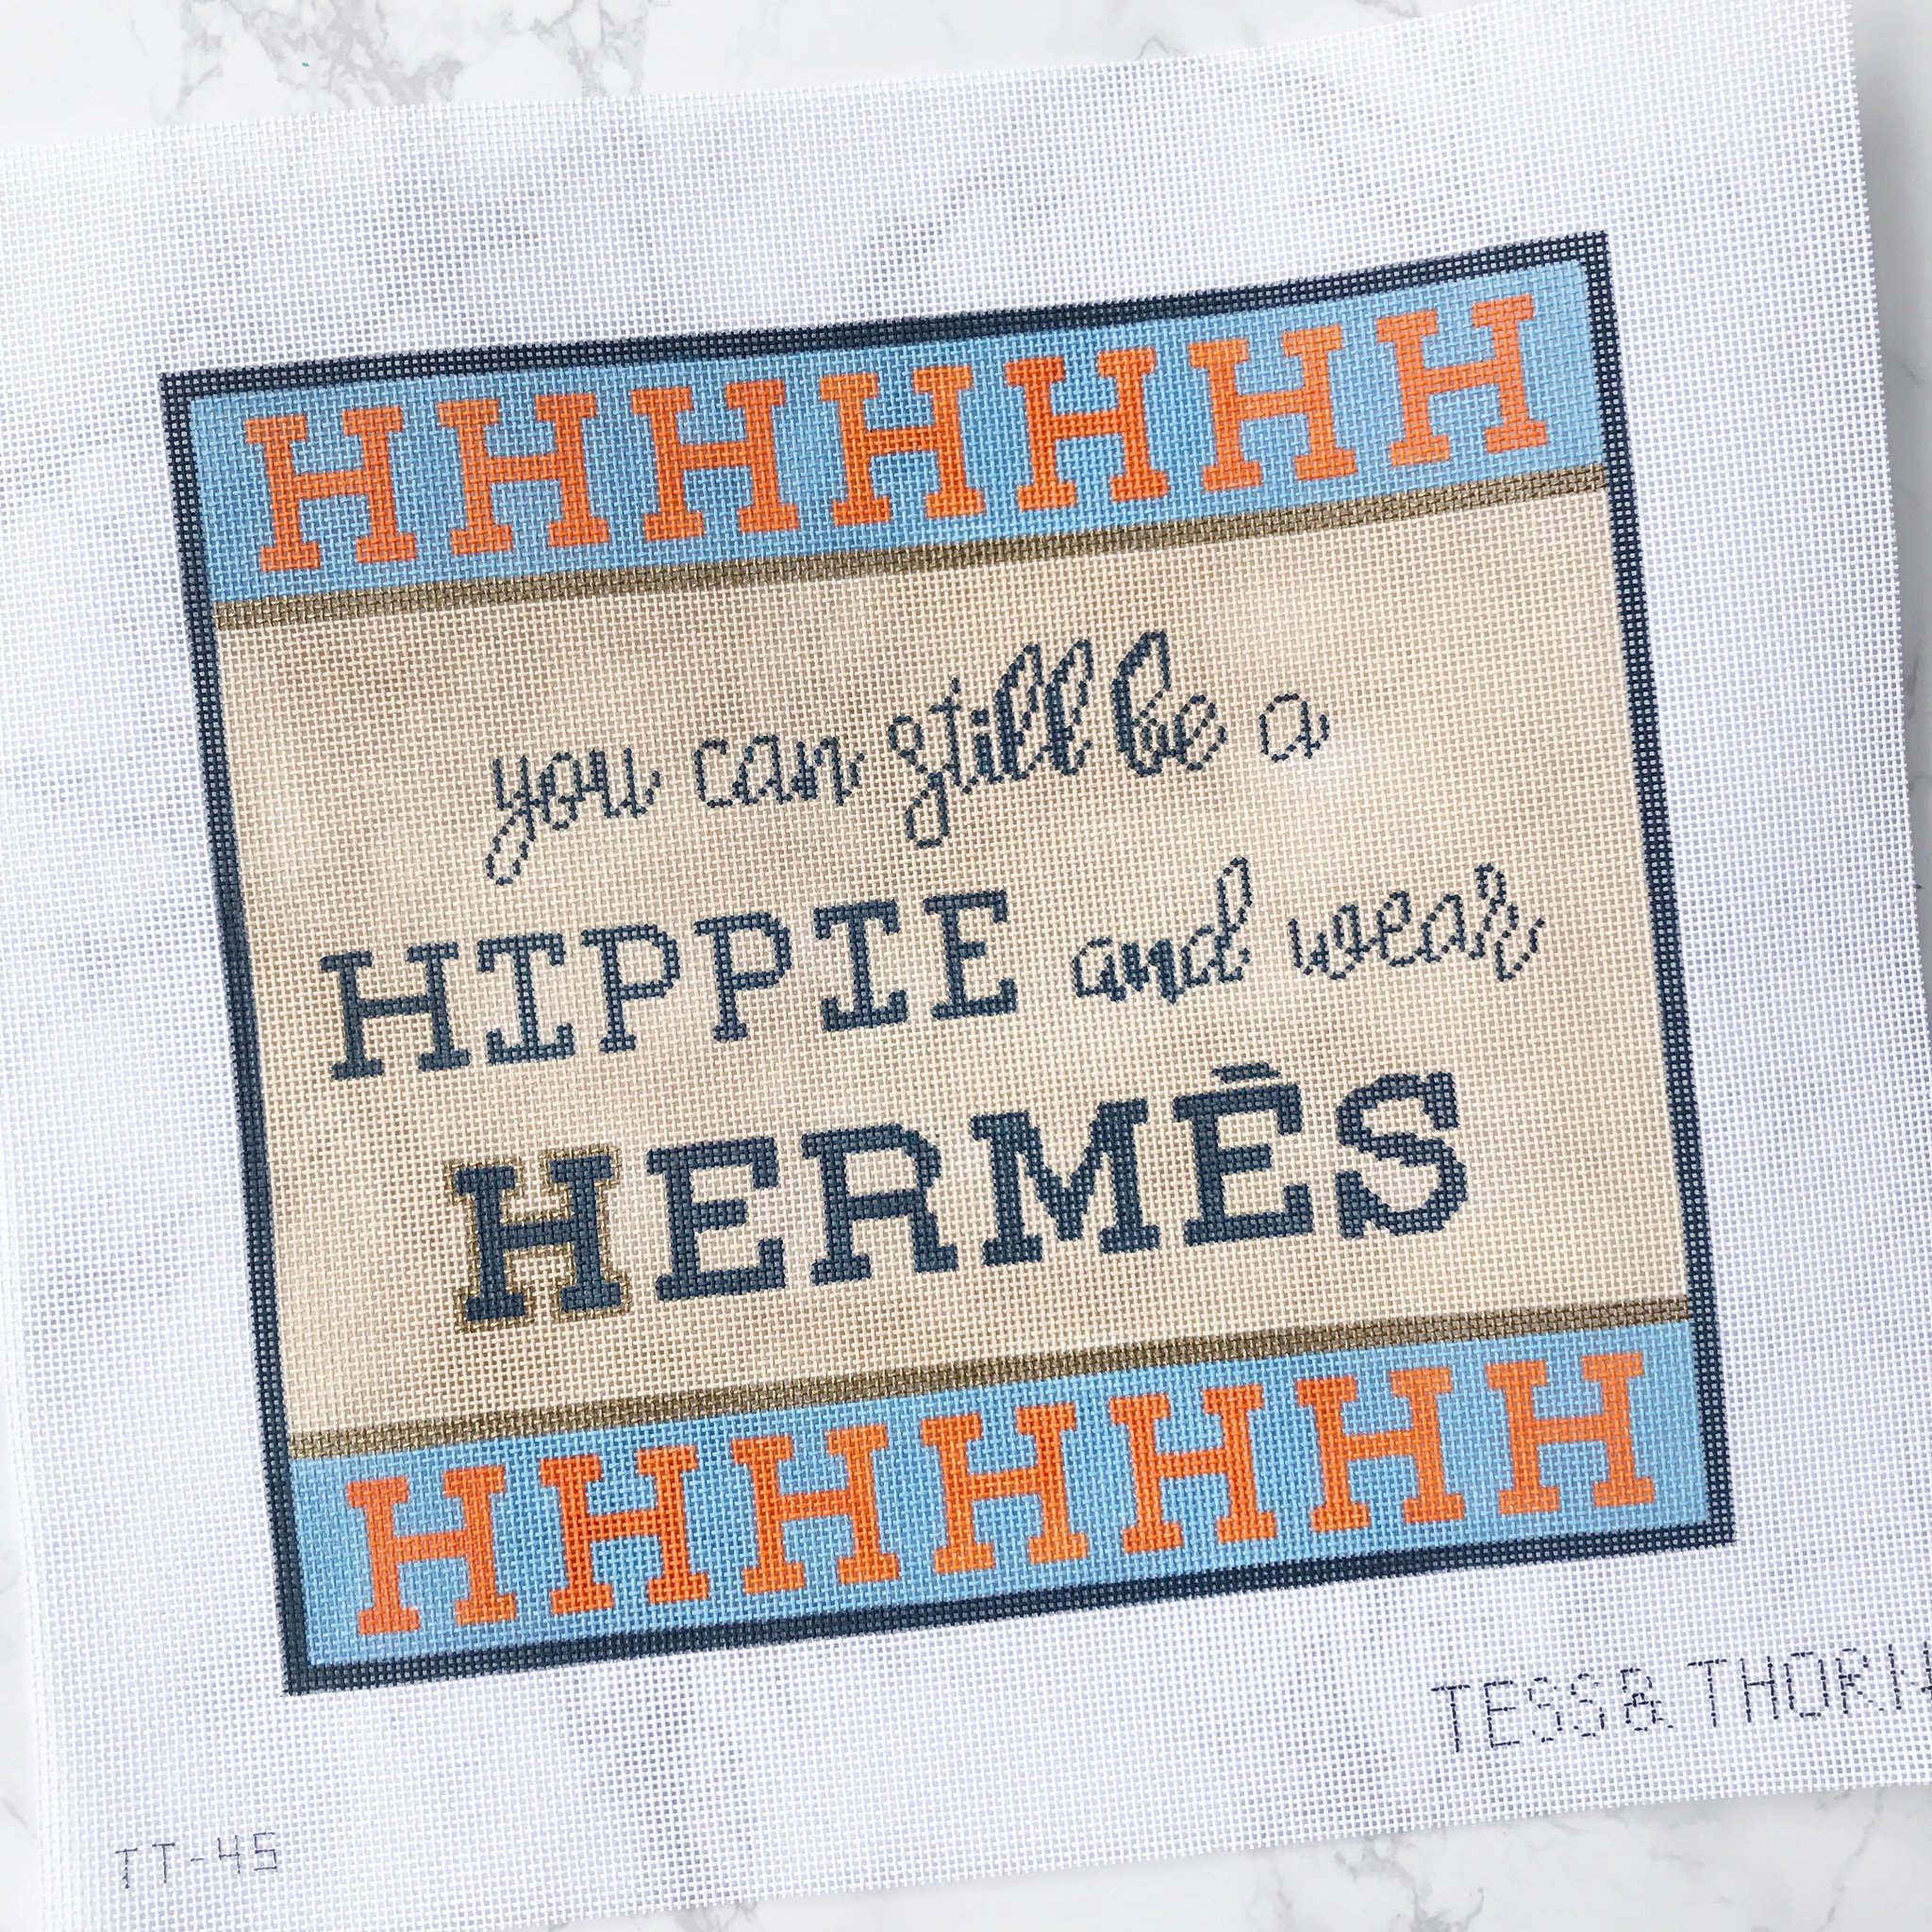 HHHHHHH
you can still be a
HIPPIE and wear
HERMÈS
HHHHHHH
TESS & THORN
TT-45